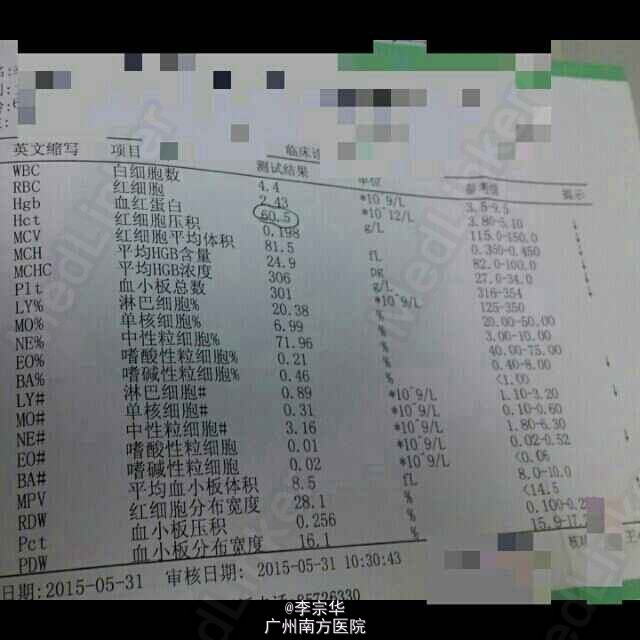 英文缩写 项目 测试结果 单位 参考值 提示
临床诊
WBC 白细胞数 4.4 *10^9/L 3.5-9.5
RBC 红细胞 2.43 *10^12/L 3.80-5.10 ↓
Hgb 血红蛋白 60.5 g/L 115.0-150.0 ↓
Hct 红细胞压积 0.198 0.350-0.450 ↓
MCV 红细胞平均体积 81.5 fL 82.0-100.0 ↓
MCH 平均HGB含量 24.9 pg 27.0-34.0 ↓
MCHC 平均HGB浓度 306 g/L 316-354 ↓
Plt 血小板总数 301 *10^9/L 125-350
LY% 淋巴细胞% 20.38 % 20.00-50.00
MO% 单核细胞% 6.99 % 3.00-10.00
NE% 中性粒细胞% 71.96 % 40.00-75.00
EO% 嗜酸性粒细胞% 0.21 % 0.40-8.00 ↓
BA% 嗜碱性粒细胞% 0.46 % <1.00
LY# 淋巴细胞# 0.89 *10^9/L 1.10-3.20 ↓
MO# 单核细胞# 0.31 *10^9/L 0.10-0.60
NE# 中性粒细胞# 3.16 *10^9/L 1.80-6.30
EO# 嗜酸性粒细胞 0.01 *10^9/L 0.02-0.52 ↓
BA# 嗜碱性粒细胞 0.02 <0.06
MPV 平均血小板体积 8.5 fL 8.0-10.0
RDW 红细胞分布宽度 28.1 % <14.5
Pct 血小板压积 0.256 % 0.100-0.2
PDW 血小板分布宽度 16.1 % 15.9-17.
日期:2015-05-31 审核日期: 2015-05-31 10:30:43
85726330
MedLinker
@李宗华
广州南方医院